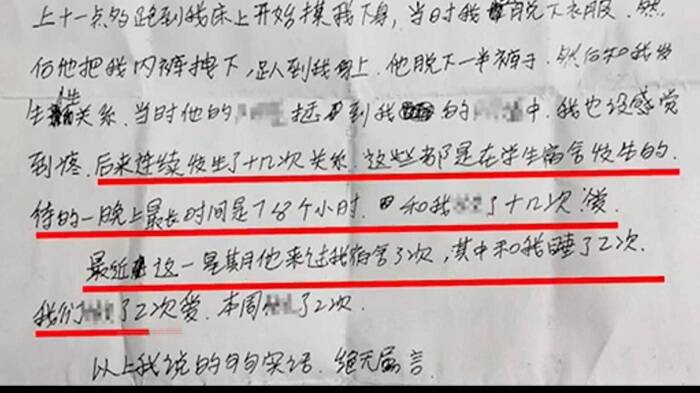 上十一点多跑到我床上开始摸我下身,当时我脱下衣服.然
后他把我内裤拽下,趴到我身上.他脱下一半裤子.然后和我发
生性关系.当时他的 到我 的 中.我也没感觉
到疼.后来连续发生了十几次关系.这些都是在学生宿舍发生的.
待的一晚上最长时间是7 8个小时. 和我 了十几次爱.
最近这一星期他来过我宿舍3次,其中和我睡了2次.
我们 了2次爱.本周 了2次.
以上我说的句句实话.绝无 言.